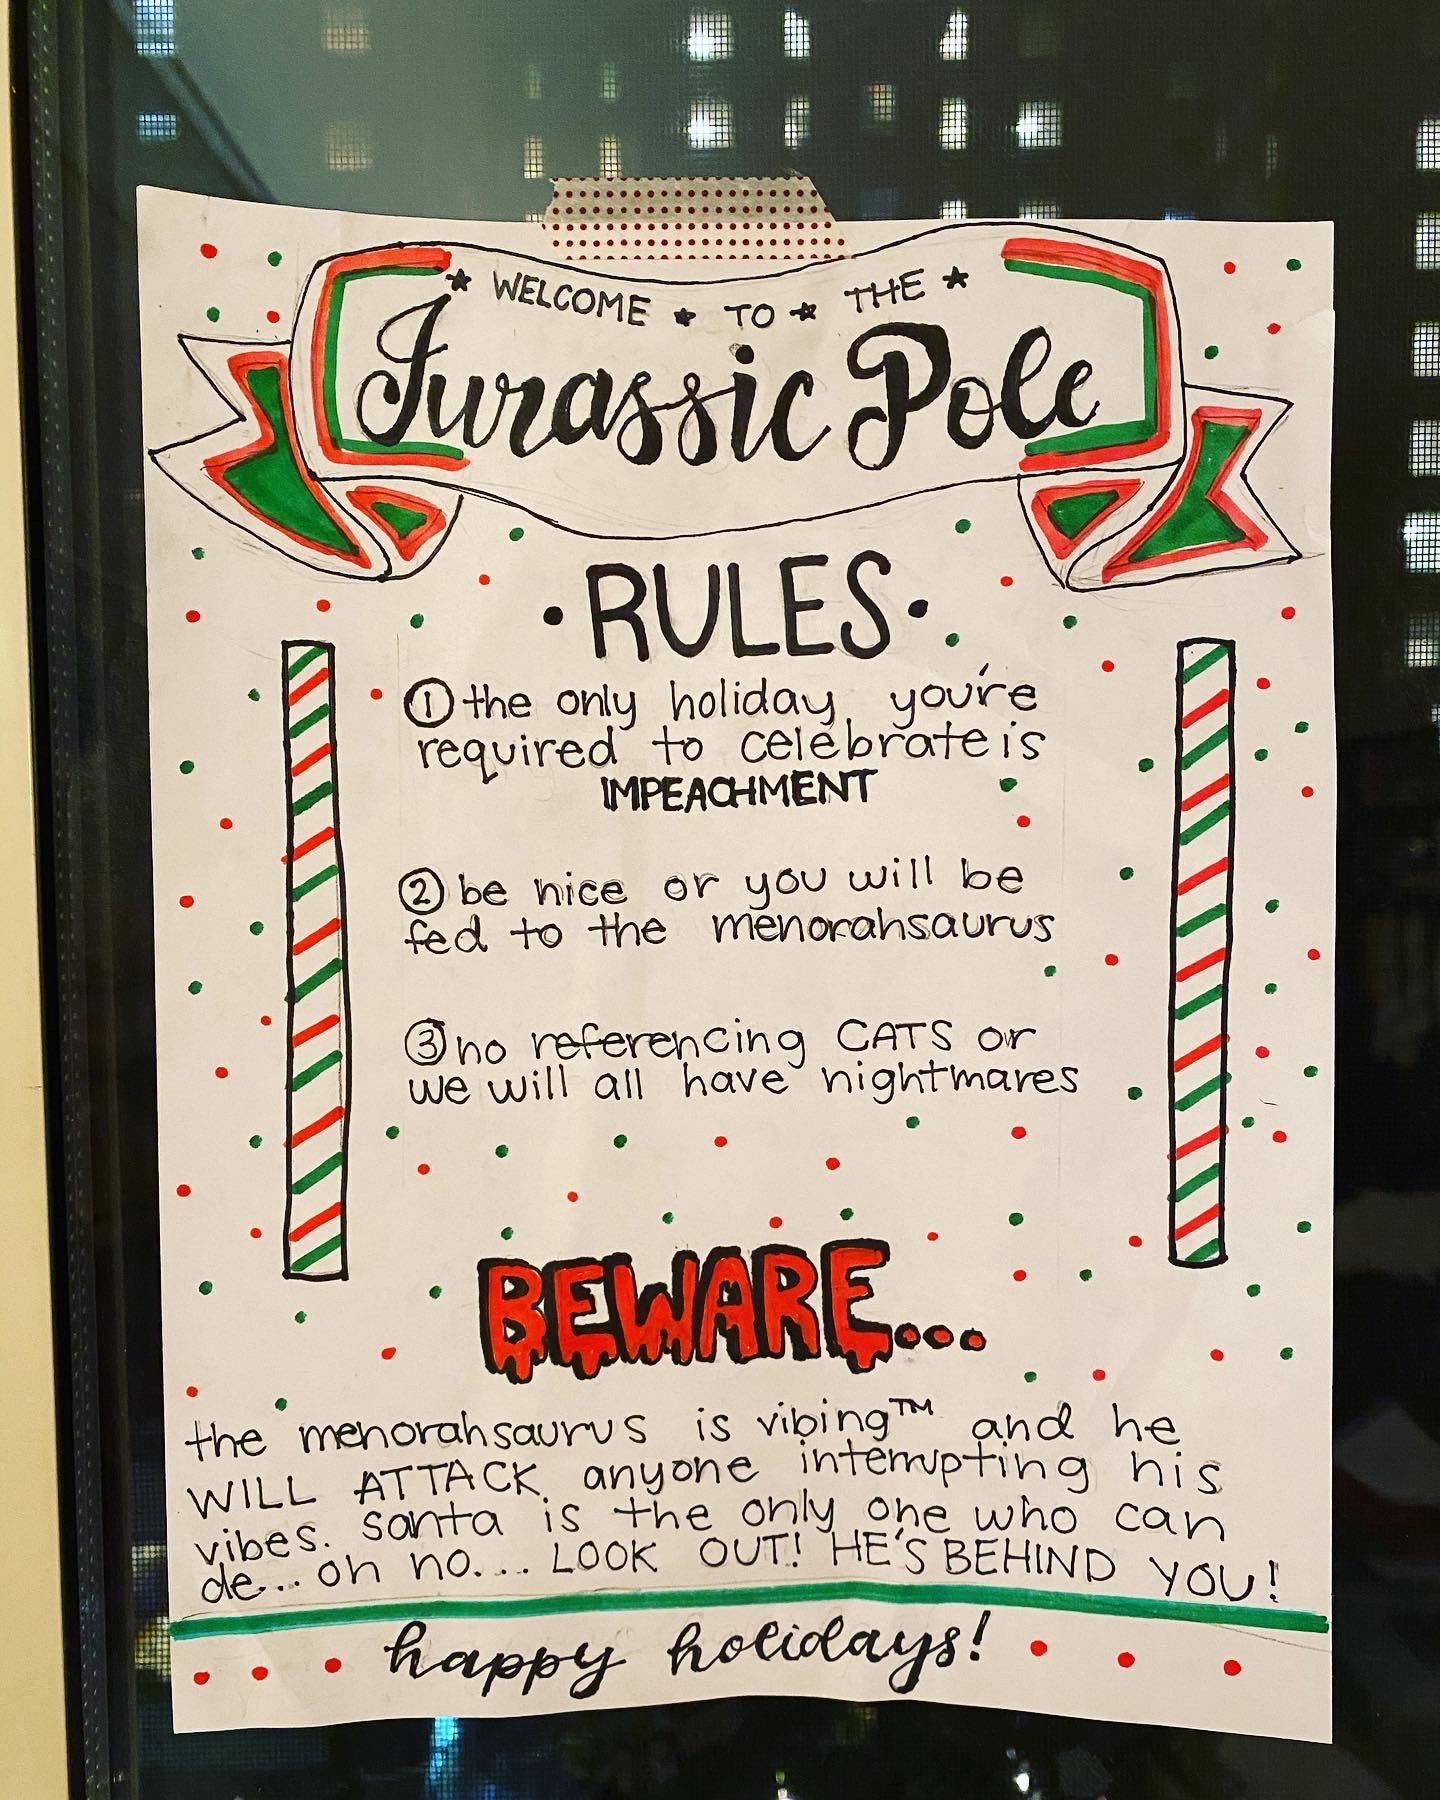 ★ WELCOME ★ TO ★ THE ★
Jurassic Pole
• RULES •
① the only holiday you're
required to celebrate is
IMPEACHMENT
② be nice or you will be
fed to the menorahsaurus
③ no referencing CATS or
we will all have nightmares
BEWARE...
the menorahsaurus is vibing™ and he
WILL ATTACK anyone interrupting his
vibes. santa is the only one who can
de... oh no... LOOK OUT! HE'S BEHIND YOU!
happy holidays!